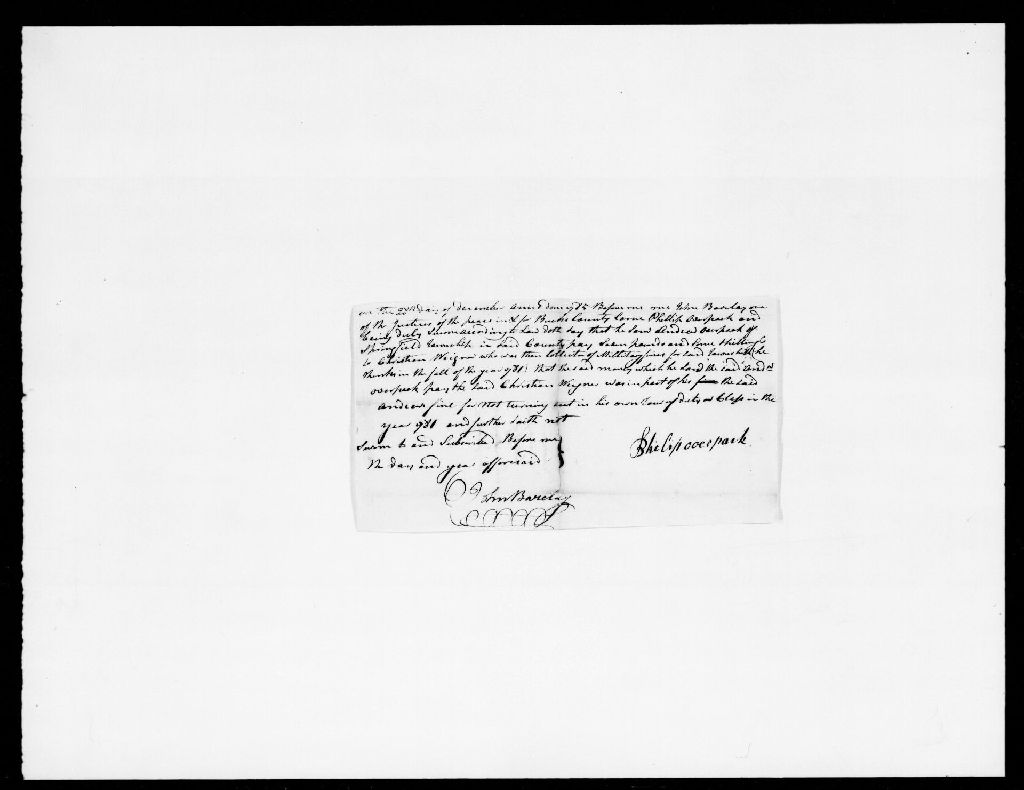 on the day of december anno domy 85 Before me John Barclay one
of the Justices of the peace in & for Bucks County Came Phillip Overpack and
being duly Sworn according to Law doth Say that he Saw Andrew Overpack of
Springfield township in Said County pay Seven pounds and Some Shillings
to Christian Weigner who was then Collector of Millitia fines for Said township he
thinks in the fall of the year 981 that the said money which he Said the said And.w
overpack pay the Said Christian Weigner was in part of his the said
Andrew fine for Not turning out in his own Tour of duty or Class in the
year 981 and further Saith not
Sworn to and Subscribed Before me
the day and year afforesaid
Philip overpack
Jno Barclay